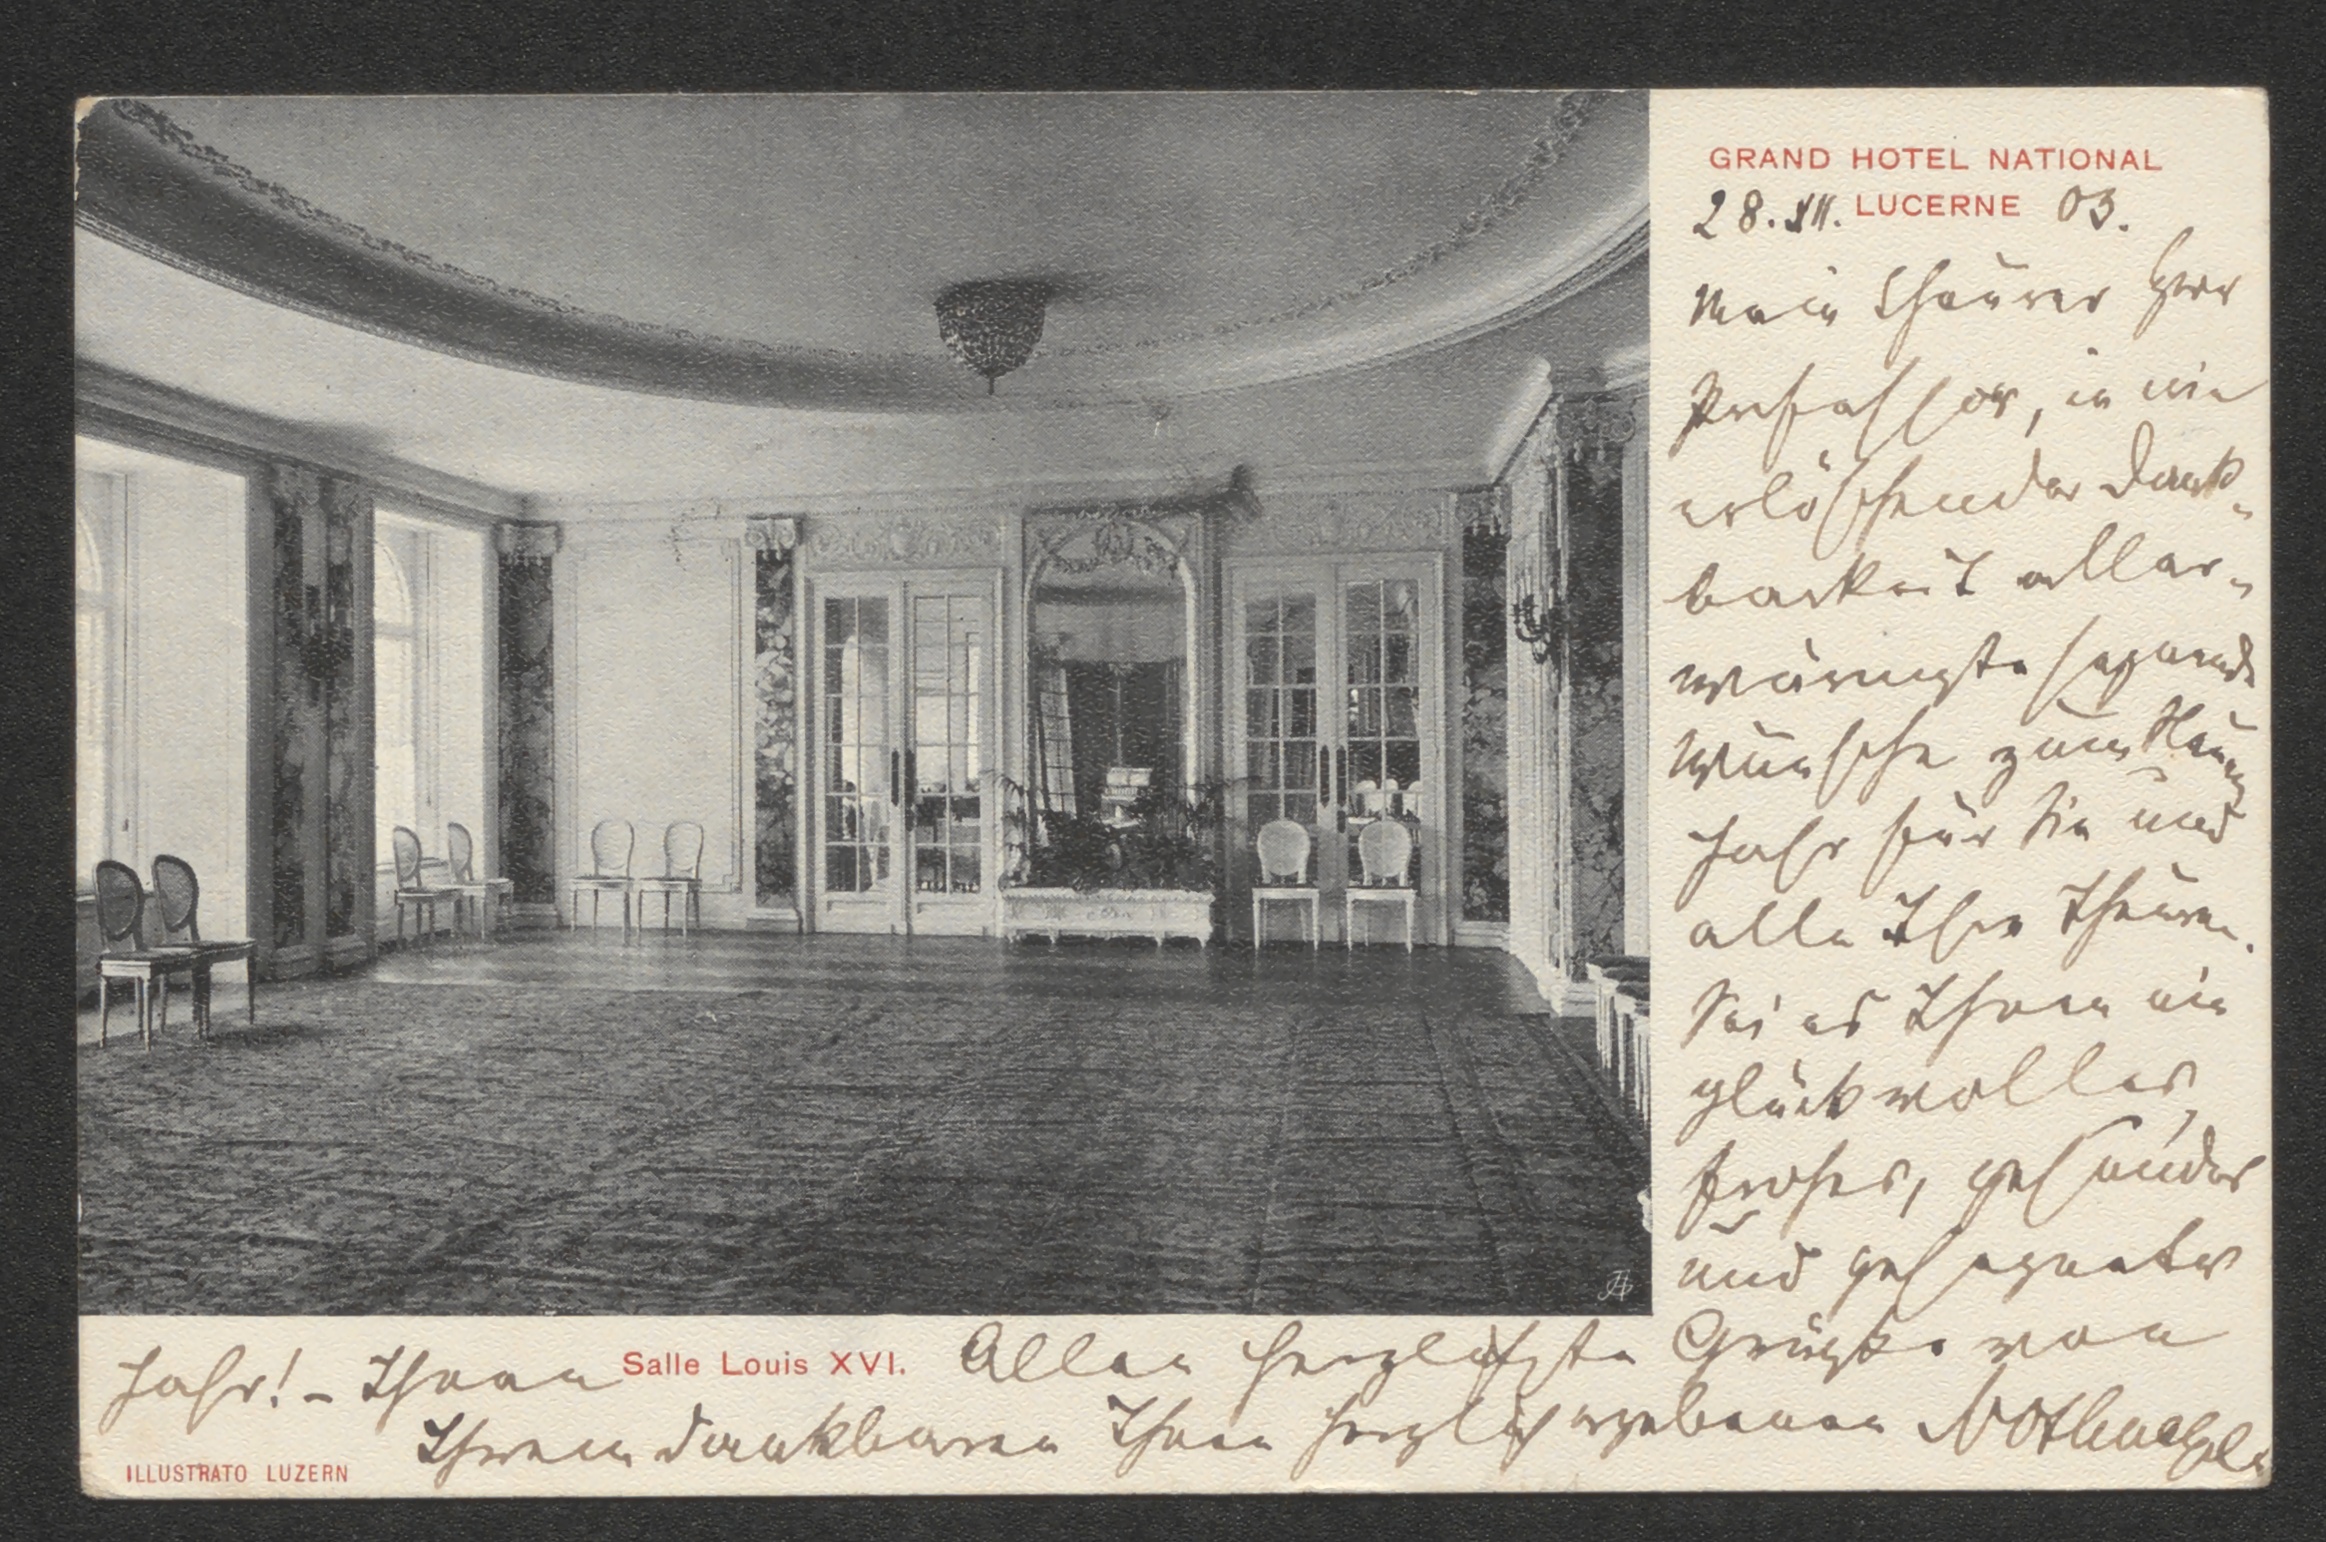 GRAND HOTEL NATIONAL
LUCERNE
28. XII. 03.
Mein theurer Herr
Professor, in nie
erlöschender Dank-
barkeit aller-
wärmste segnende
Wünsche zum Neuen
Jahr für Sie und
alle Ihre Theuren.
Sei es Ihnen ein
glückvolles,
frohes, gesundes
und gesegnetes
Jahr! – Ihnen
Salle Louis XVI.
Allen herzlichste Grüße von
Ihrem dankbaren Ihnen herzlich ergebenen Nothnagel
ILLUSTRATO LUZERN